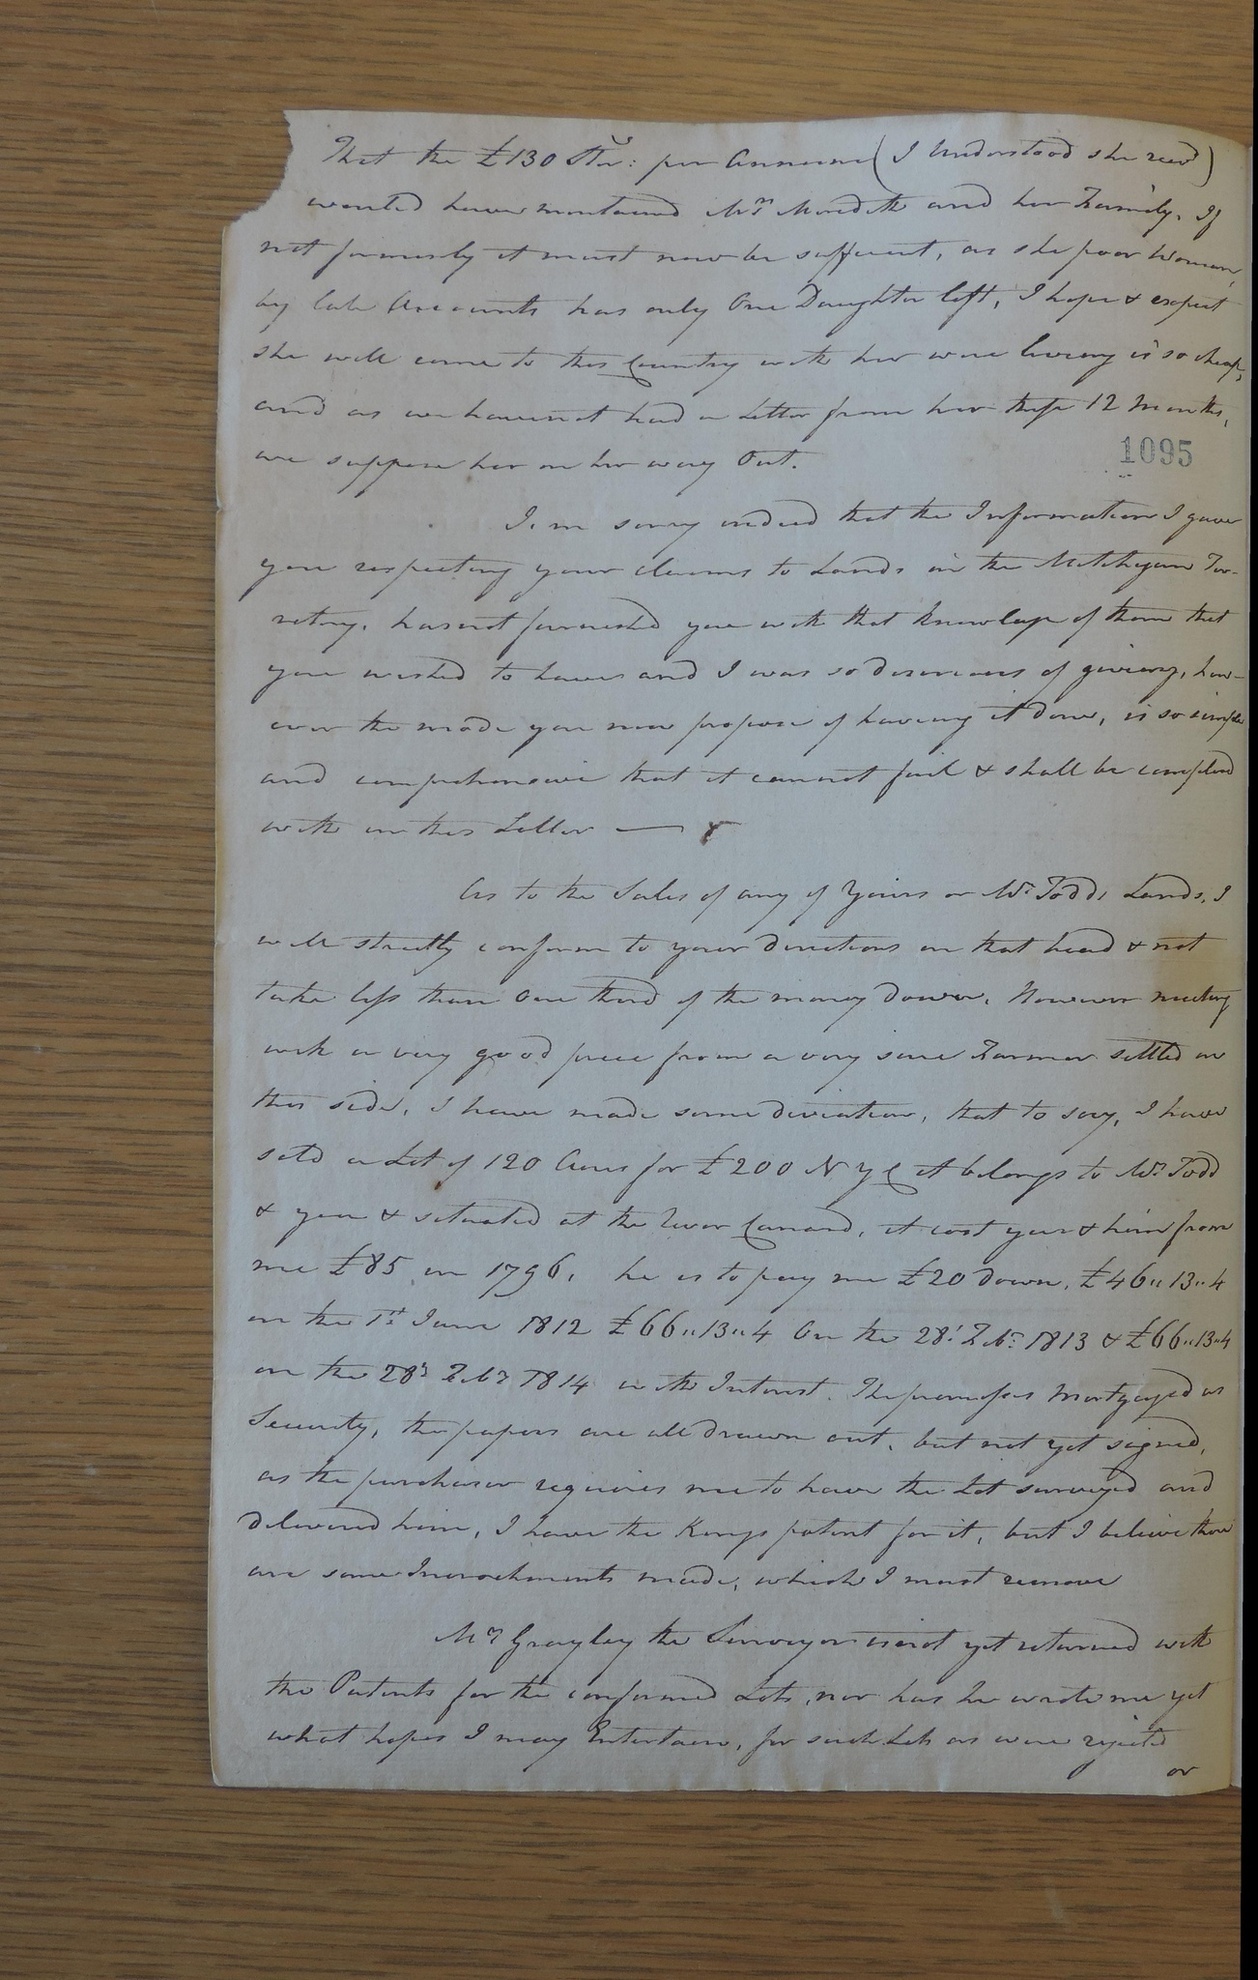 That the £130 Ster: per Annum (I Understood she recd)
would have maintained Mrs Meredith and her Family. If
not formerly it must now be sufficient, as she poor Woman,
by late Accounts has only One Daughter left, I hope & expect
she will come to this Country with her were liveing is so cheap,
and as we have not had a Letter from her these 12 Months,
we suppose her on her way Out.
1095
I.m sorry indeed that the Information I gave
you respecting your claims to Lands in the Mitchegan Ter-
retory, has not furnished you with that knowlege of them that
you wished to have and I was so desireous of giveing, how-
ever the mode you now propose of haveing it done, is so simple
and comprehensive that it cannot fail & shall be complied
with in this Letter —
As to the Sales of any of Yours or Mr Todds Lands, I
will strictly conform to your directions on that head & not
take less than One third of the money down. However meeting
with a very good price from a very sure Farmer settled on
this side, I have made some deviation, that to say, I have
sold a Lot of 120 Acres for £200 NYC it belongs to Mr Todd
& you & situated at the River Canard, it cost you & him from
me £85 in 1796, he is to pay me £20 down, £46..13..4
on the 1st June 1812 £66..13..4 On the 28t Feby 1813 & £66..13..4
on the 28t Feby 1814 with Interest. The premises Mortgaged as
Security, the papers are all drawn out, but not yet signed,
as the purchaser requires me to have the Lot surveyed and
delivered him, I have the Kings patent for it, but I believe there
are some Incroachments made, which I must remove
Mr Greyley the Surveyor is not yet returned with
the Patents for the confirmed Lots, nor has he wrote me yet
what hopes I may Entertain, for such Lots as were rejected
or